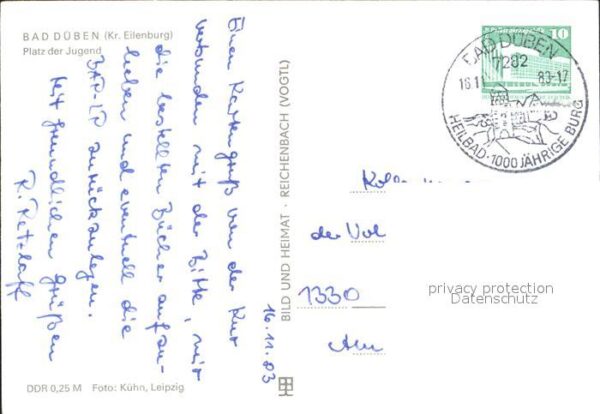 BAD DÜBEN (Kr. Eilenburg)
Platz der Jugend
Einen Kartengruß von der Kur
verbunden mit der Bitte, mir
die bestellten Bücher aufzu-
heben und eventuell die
zurückzulegen.
Mit freundlichen Grüßen
R.
16.11.83
DDR 0,25 M Foto: Kühn, Leipzig
BILD UND HEIMAT · REICHENBACH (VOGTL)
10
BAD DÜBEN
7282
16.11 83-17
HEILBAD · 1000 JÄHRIGE BURG
der Vol
1330
privacy protection
Datenschutz